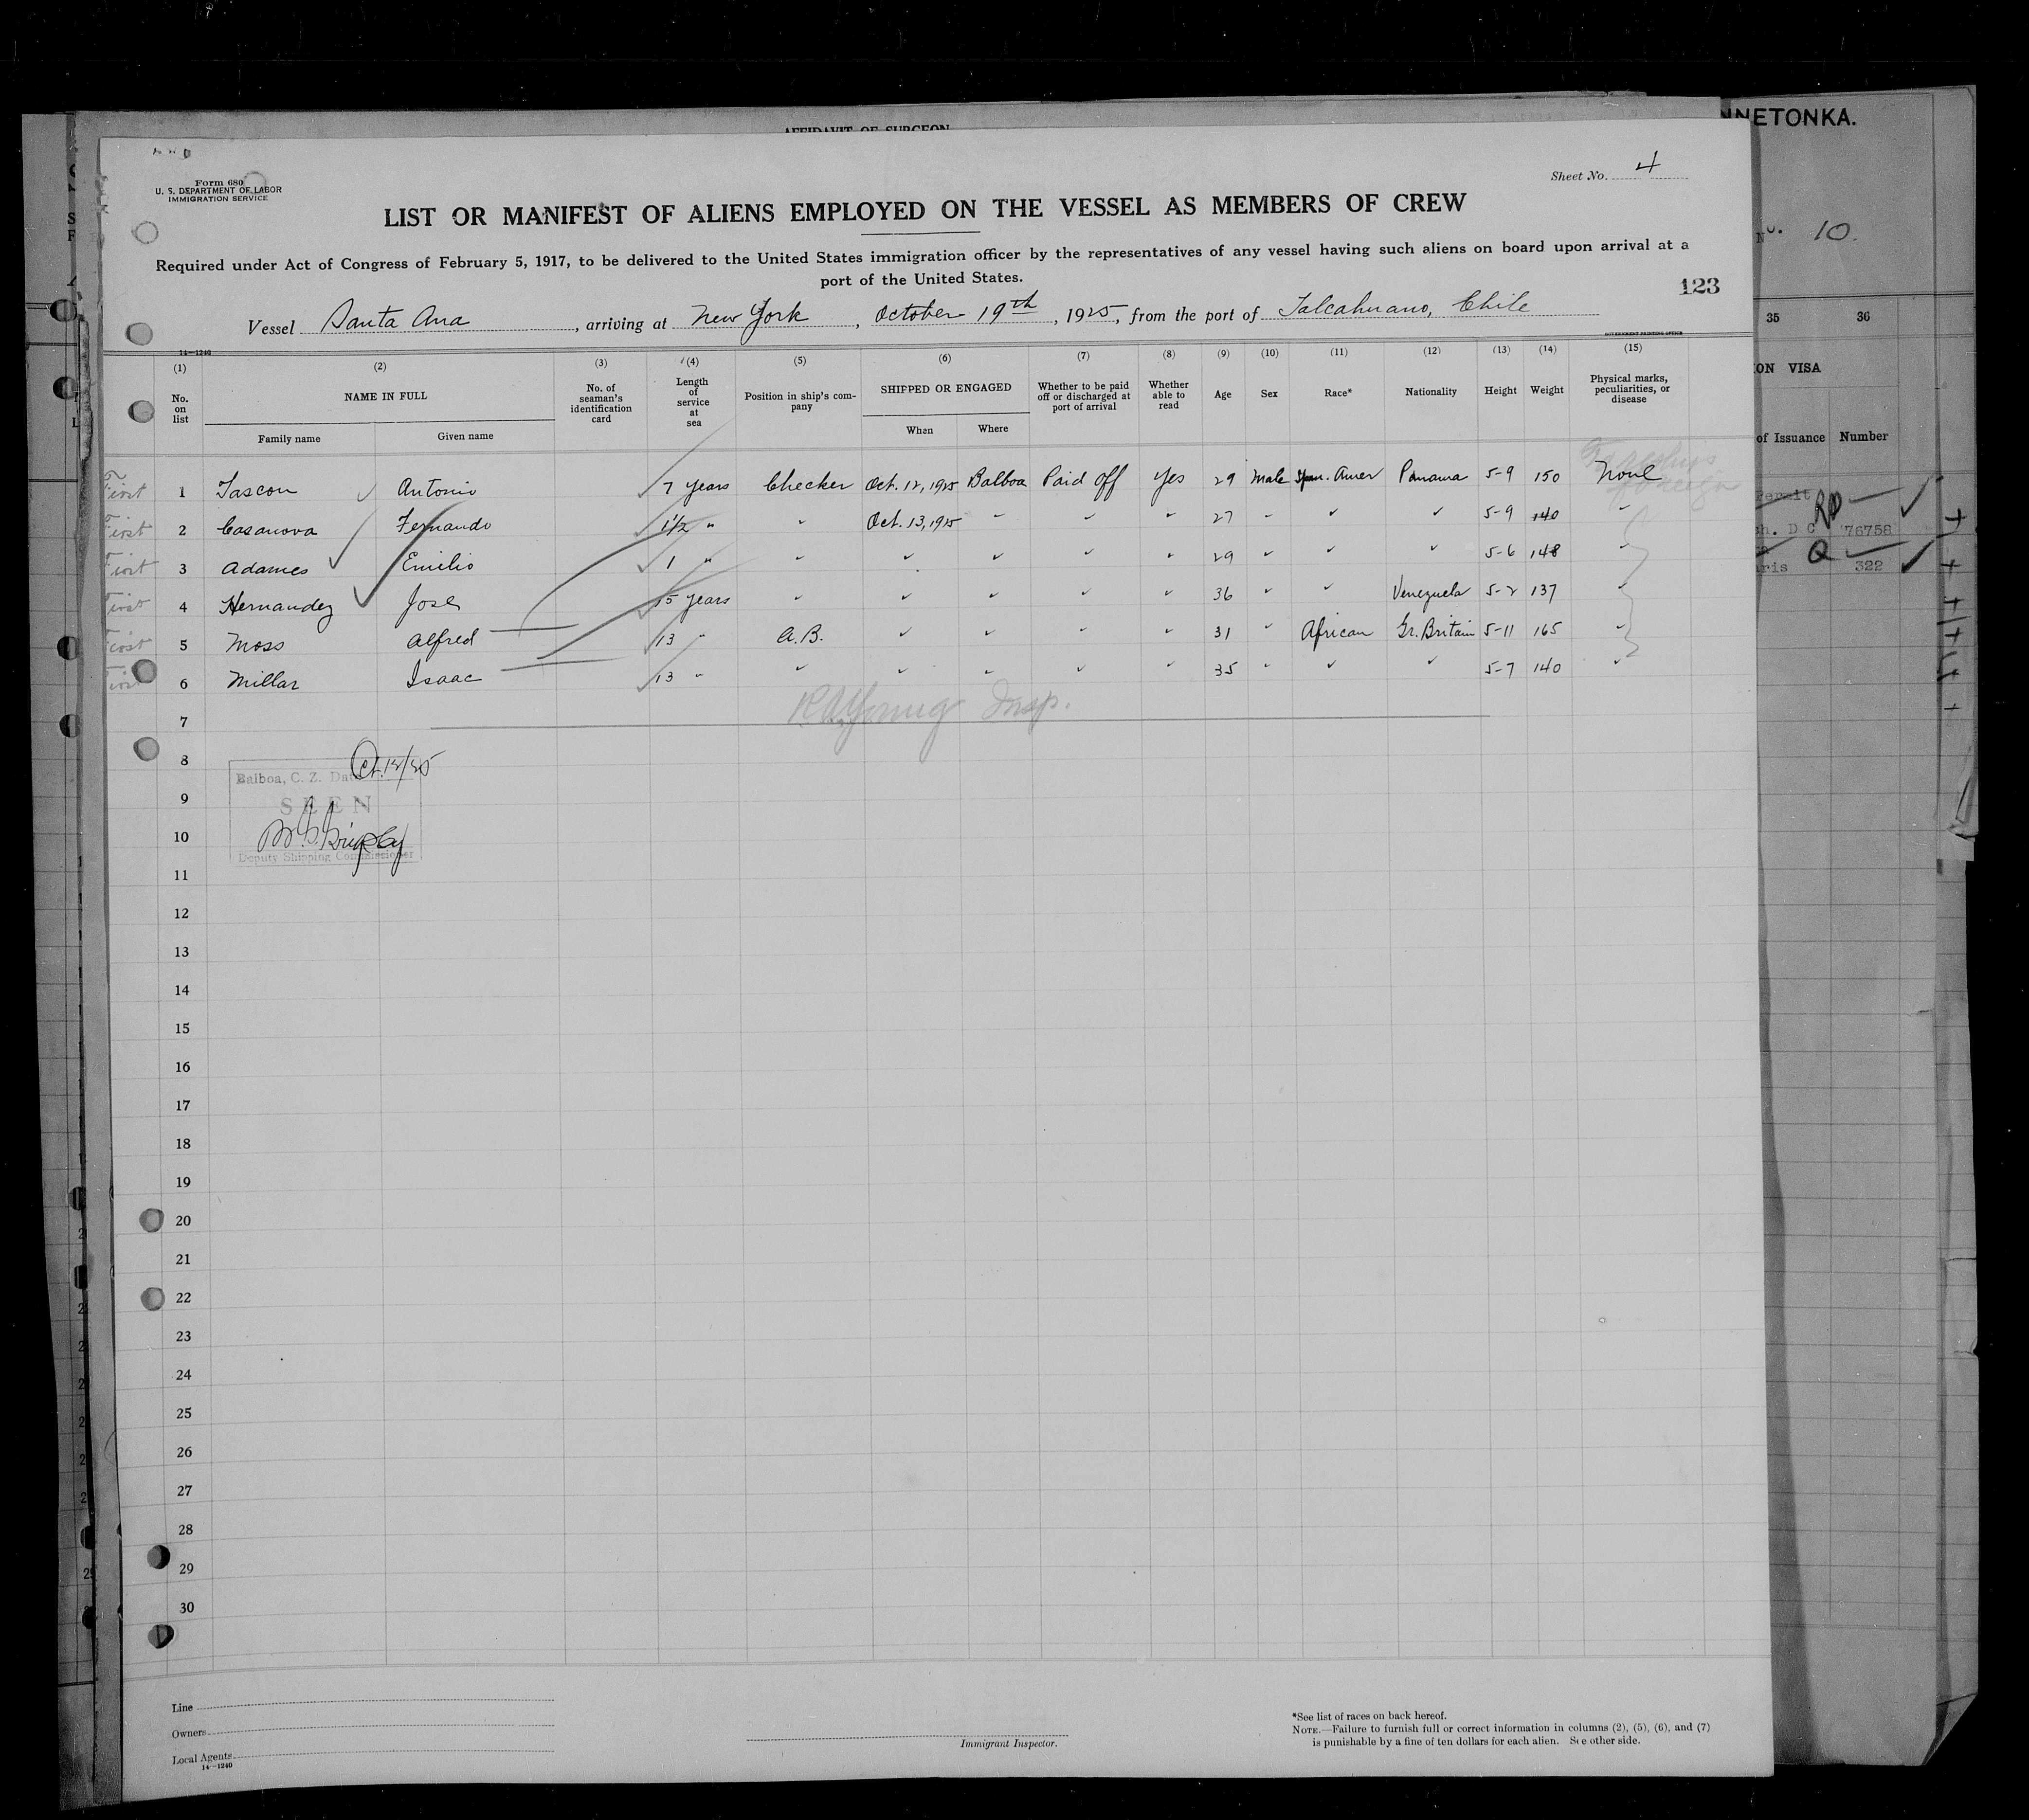 AFFIDAVIT OF SURGEON
NNETONKA.
Form 680
U. S. DEPARTMENT OF LABOR
IMMIGRATION SERVICE
Sheet No. 4
LIST OR MANIFEST OF ALIENS EMPLOYED ON THE VESSEL AS MEMBERS OF CREW
Required under Act of Congress of February 5, 1917, to be delivered to the United States immigration officer by the representatives of any vessel having such aliens on board upon arrival at a
port of the United States.
123
10.
Vessel Santa Ana, arriving at New York, October 19th, 1925, from the port of Talcahuano, Chile
GOVERNMENT PRINTING OFFICE
35 36
14-1240
(1) (2) (3) (4) (5) (6) (7) (8) (9) (10) (11) (12) (13) (14) (15)
No. on list NAME IN FULL No. of seaman's identification card Length of service at sea Position in ship's company SHIPPED OR ENGAGED Whether to be paid off or discharged at port of arrival Whether able to read Age Sex Race* Nationality Height Weight Physical marks, peculiarities, or disease
Family name Given name When Where
ON VISA
of Issuance Number
First 1 Tascon Antonio 7 years Checker Oct. 12, 1925 Balboa Paid off Yes 29 Male Span. Amer Panama 5-9 150 None
First 2 Casanova Fernando 1 1/2 " " Oct. 13, 1925 " " " 27 " " " 5-9 140 "
First 3 Adames Emilio 1 " " " " " " 29 " " " 5-6 148 "
First 4 Hernandez Jose 15 years " " " " " 36 " " Venezuela 5-2 137 "
First 5 Moss Alfred 13 " A.B. " " " " 31 " African Gr. Britain 5-11 165 "
First 6 Millar Isaac 13 " " " " " " 35 " " " 5-7 140 "
76758
322
7
Young Insp.
8
Balboa, C. Z. Date Oct. 13/25
9
SEEN
10
Deputy Shipping Commissioner
11
12
13
14
15
16
17
18
19
20
21
22
23
24
25
26
27
28
29
30
Line
Owners
Local Agents
14-1240
Immigrant Inspector.
*See list of races on back hereof.
NOTE.—Failure to furnish full or correct information in columns (2), (5), (6), and (7)
is punishable by a fine of ten dollars for each alien. See other side.